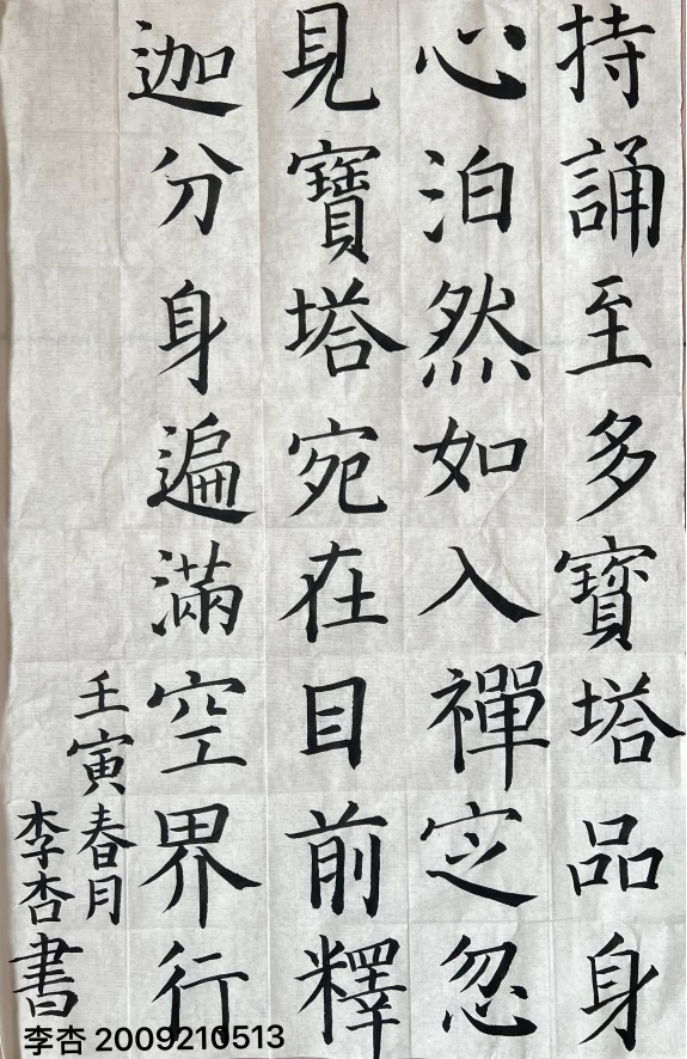 持誦至多寶塔品身
心泊然如入禪定忽
見寶塔宛在目前釋
迦分身遍滿空界行
壬寅春月
李杏書
李杏 2009210513